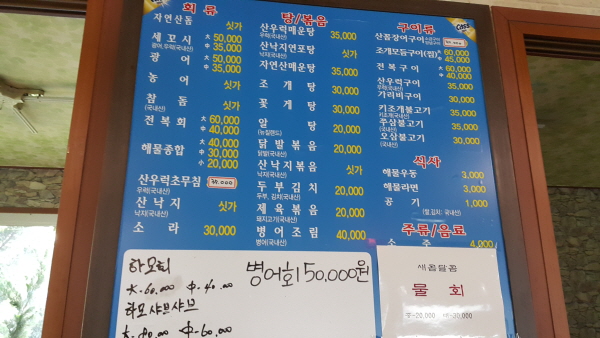 회 류
자연산돔 싯가
세꼬시 大 50,000
광어, 우럭(국내산) 中 35,000
광 어 大 50,000
(국내산) 中 35,000
농 어 싯가
참 돔 싯가
(국내산)
전 복 회 大 60,000
中 40,000
해물종합 大 40,000
中 30,000
小 20,000
산우럭초무침
우럭(국내산)
산 낙 지 싯가
낙지(국내산)
소 라 30,000
탕/볶음
산우럭매운탕 35,000
우럭(국내산)
산낙지연포탕 싯가
낙지(국내산)
자연산매운탕 35,000
조 개 탕 30,000
꽃 게 탕 30,000
알 탕 20,000
(뉴질랜드)
닭 발 볶 음 20,000
닭발(국내산)
산 낙 지 볶 음 싯가
낙지(국내산)
두 부 김 치 20,000
두부, 김치(국내산)
제 육 볶 음 20,000
돼지고기(국내산)
병 어 조 림 40,000
병어(국내산)
구이류
산꼼장어구이
조개모듬구이(찜) 大 60,000
中 45,000
전 복 구 이 大 60,000
中 40,000
산우럭구이 35,000
우럭(국내산)
가리비구이 30,000
키조개불고기 35,000
키조개(국내산)
쭈삼불고기 35,000
오삼불고기 30,000
(국내산)
식사
해물우동 3,000
해물라면 3,000
공 기 1,000
(쌀,김치: 국내산)
주류/음료
소 주 4,000
하모회
大.60.000 中.40.000
하모샤브샤브
大.80.000 中-60.000
병어회 50,000원
새콤달콤
물 회
中-20,000 大-30,000